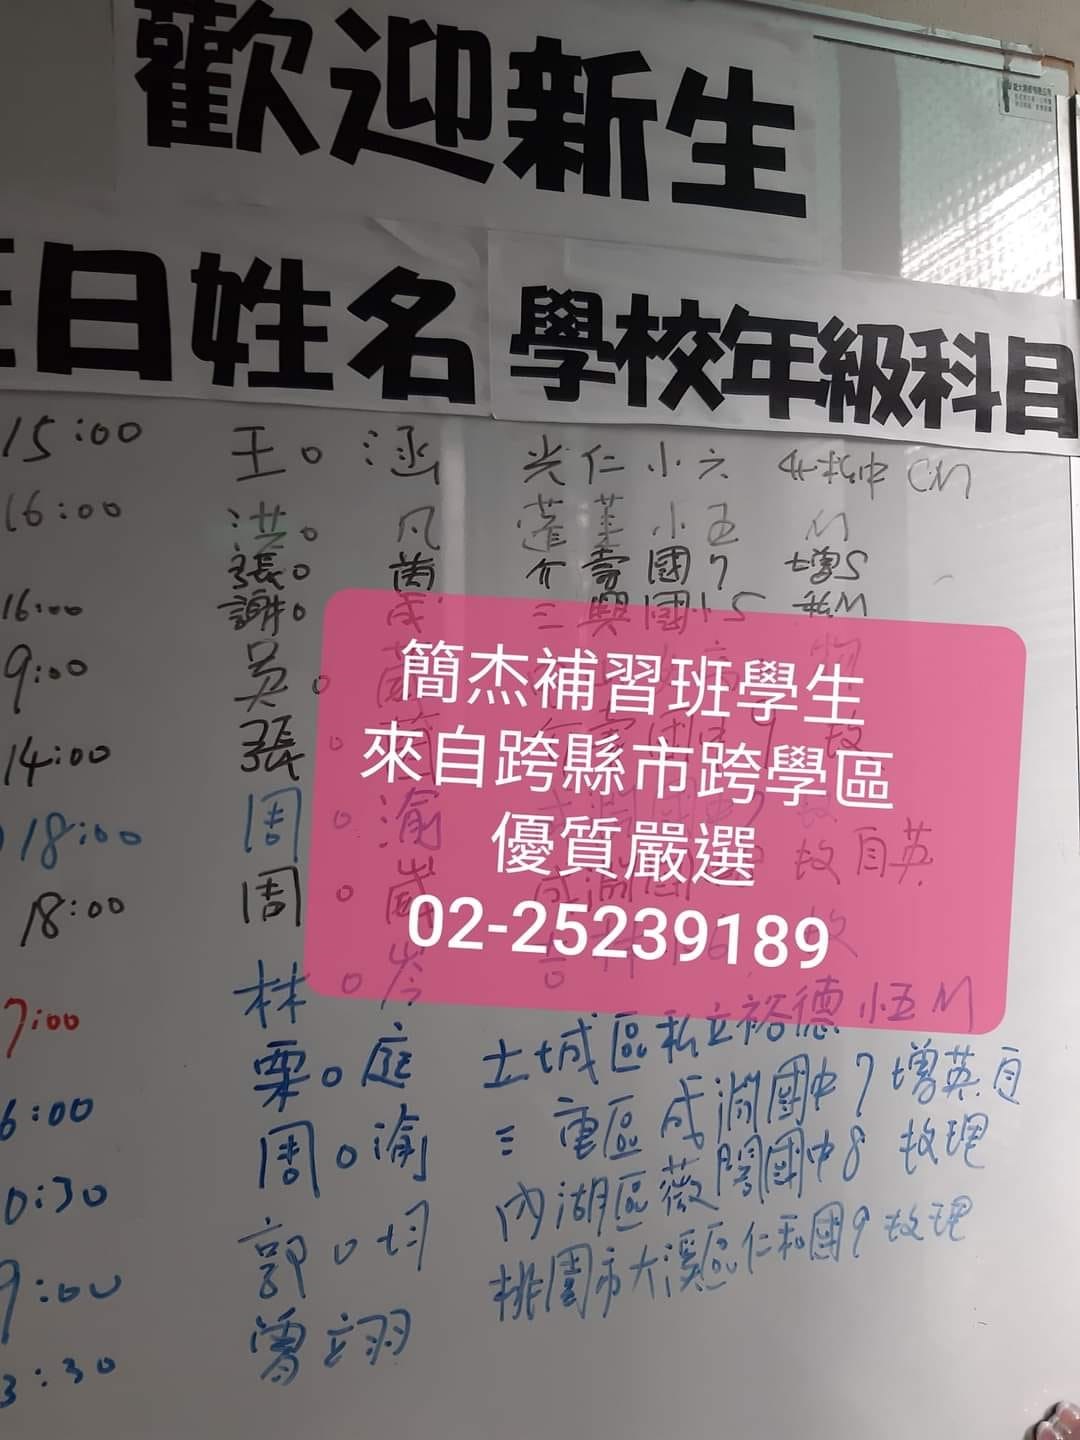 歡迎新生
日姓名 學校年級科目
15:00 王○涵 光仁小六 CM
16:00 洪○凡 蓬萊小五 M
張○茵 介壽國7 增S
16:00 謝○成 三興國小5 私M
9:00 吳○
14:00 張○
18:00 周○渝
18:00 周○崴 故自英
7:00 林○岑
6:00 栗○庭 土城區私立裕德小五M
0:30 周○渝 三重區成淵國中7增英自
9:00 郭○均 內湖區薇閣國中8 故理
3:30 曾立翔 桃園市大溪區仁和國9故理
簡杰補習班學生
來自跨縣市跨學區
優質嚴選
02-25239189